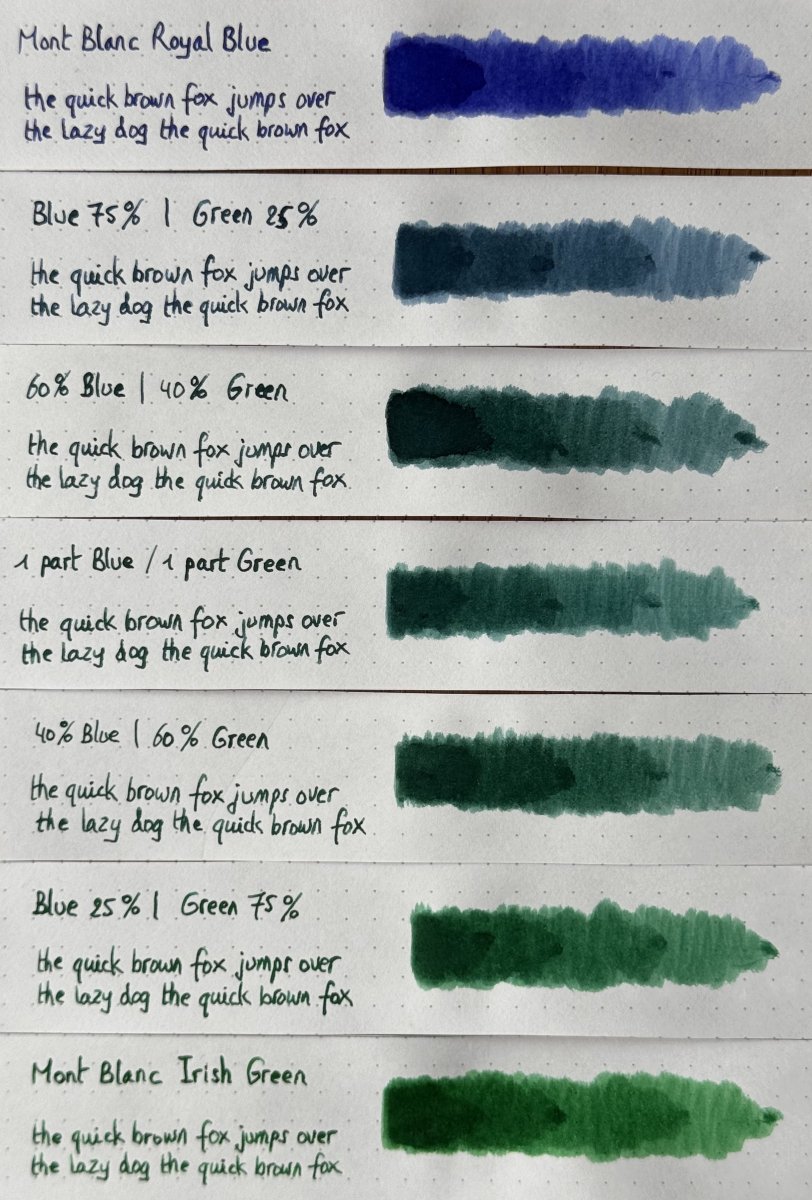 Mont Blanc Royal Blue
the quick brown fox jumps over
the lazy dog the quick brown fox
Blue 75% | Green 25%
the quick brown fox jumps over
the lazy dog the quick brown fox
60% Blue | 40% Green
the quick brown fox jumps over
the lazy dog the quick brown fox
1 part Blue / 1 part Green
the quick brown fox jumps over
the lazy dog the quick brown fox
40% Blue | 60% Green
the quick brown fox jumps over
the lazy dog the quick brown fox
Blue 25% | Green 75%
the quick brown fox jumps over
the lazy dog the quick brown fox
Mont Blanc Irish Green
the quick brown fox jumps over
the lazy dog the quick brown fox